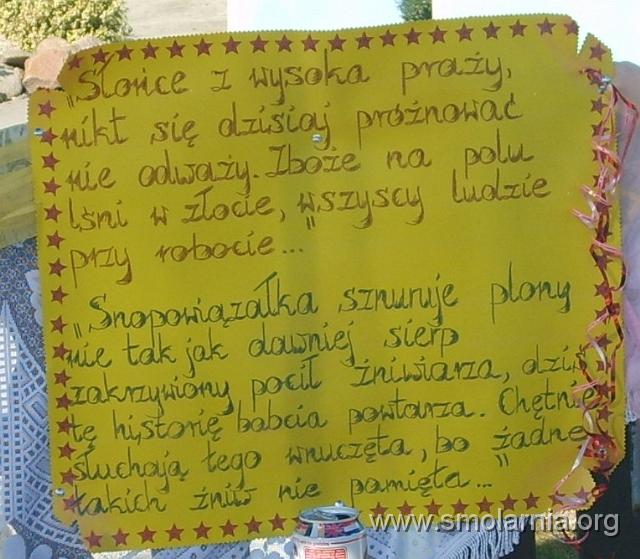 „Słońce z wysoka praży,
nikt się dzisiaj próżnować
nie odważy. Zboże na polu
lśni w złocie, wszyscy ludzie
przy robocie..."
„Snopowiązałka sznuruje plony
nie tak jak dawniej sierp
zakrzywiony pocił żniwiarza, dziś
tę historię babcia powtarza. Chętnie
słuchają tego wnuczęta, bo żadne
takich żniw nie pamięta..."
www.smolarnia.org